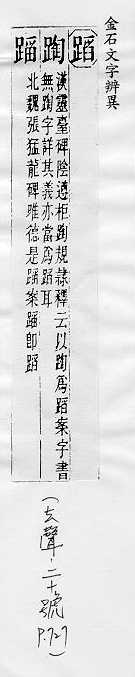 金石文字辨異
蹈
漢靈臺碑陰遵柜規隸釋云以爲蹈案字書
無字詳其義亦當爲蹈耳
蹈
北魏張猛龍碑唯德是蹈案蹈即蹈
(去聲·二十號 P.727)